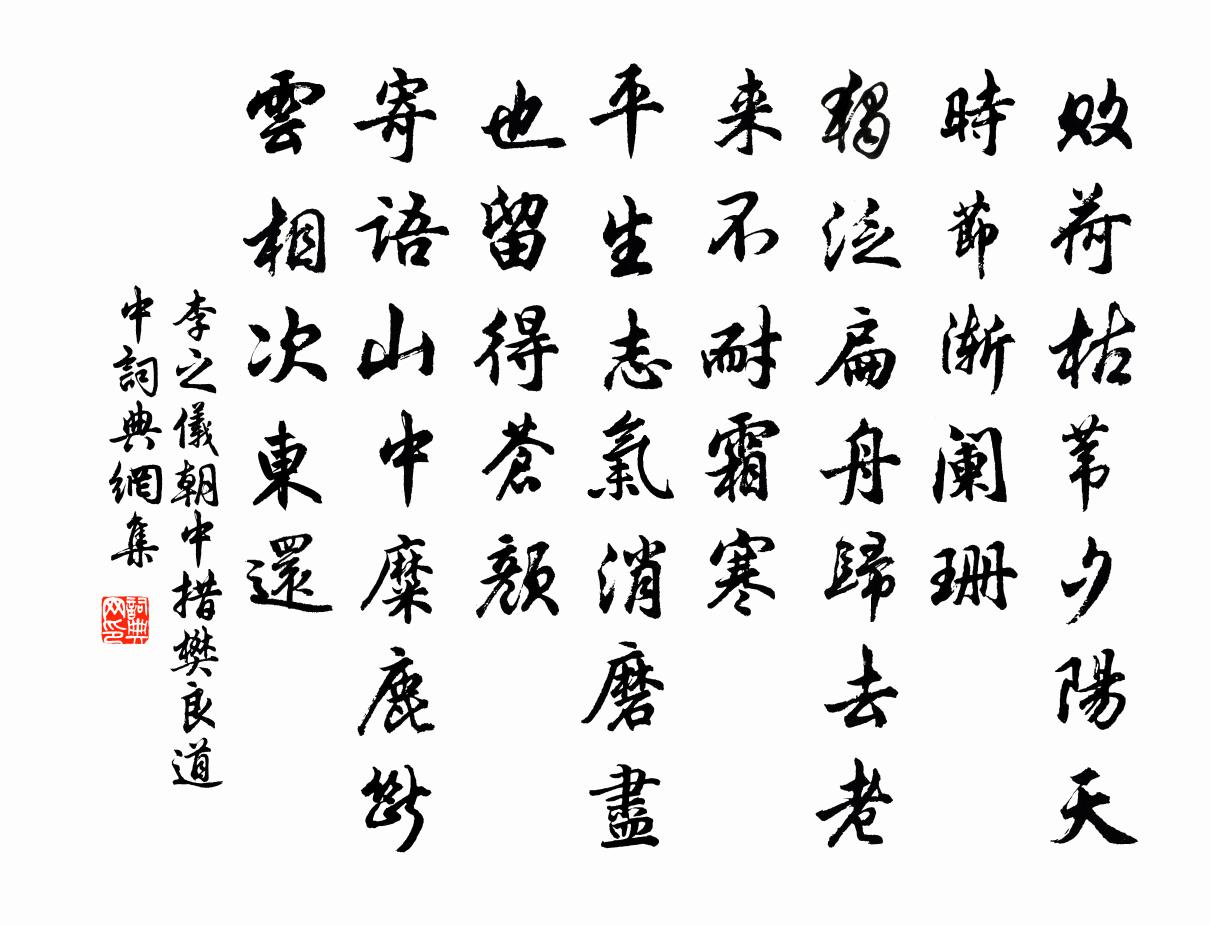 败荷枯苇夕陽天
時節漸阑珊
獨泛扁舟歸去老
来不耐霜寒
平生志氣消磨盡
也留得蒼顔
寄語山中糜鹿斷
雲相次東還
李之儀朝中措樊良道
中詞典網集
詞典网印